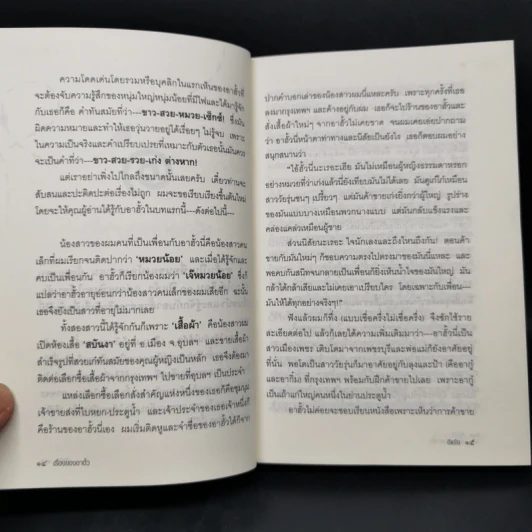 ความโดดเด่นโดยรวมหรือบุคลิกในแรกเห็นของอาฮั้วที่
จะต้องจับความรู้สึกของหนุ่มใหญ่หนุ่มน้อยที่มีไฟและได้มารู้จัก
กับเธอก็คือ คำทันสมัยที่ว่า---ขาว-สวย-หมวย-เซ็กซ์! ซึ่งมัน
ผิดความหมายและทำให้เธอวุ่นวายอยู่ได้เรื่อยๆ ไม่รู้จบ เพราะ
ในความเป็นจริงและคำเปรียบเปรยที่เหมาะกับตัวเธอนั้นมันควร
จะเป็นคำที่ว่า---ขาว-สวย-รวย-เก่ง ต่างหาก!
แต่เราอย่าเพิ่งไปไกลถึงขนาดนั้นเลยครับ เดี๋ยวท่านจะ
สับสนและปะติดปะต่อเรื่องไม่ถูก ผมจะขอเรียบเรียงขึ้นต้นใหม่
โดยจะให้คุณผู้อ่านได้รู้จักกับอาฮั้วในบทแรกนี้---ดังต่อไปนี้---
น้องสาวของผมคนที่เป็นเพื่อนกับอาฮั้วนี้คือน้องสาวคน
เล็กที่ผมเรียกจนติดปากว่า 'หมวยน้อย' และเมื่อได้รู้จักและ
คบเป็นเพื่อนกัน อาฮั้วก็เรียกน้องผมว่า 'เจ๊หมวยน้อย' ซึ่งก็
แปลว่าอาฮั้วอายุอ่อนกว่าน้องสาวคนเล็กของผมเสียอีก ฉะนั้น
เธอจึงยังเป็นสาวที่อายุไม่มากเลย
ทั้งสองสาวนี้ได้รู้จักกันก็เพราะ 'เสื้อผ้า' คือน้องสาวผม
เปิดห้องเสื้อ 'สบันงา' อยู่ที่ อ.เมือง จ.อุบลฯ และขายเสื้อผ้า
สำเร็จรูปที่สวยเก๋ทันสมัยของคุณผู้หญิงเป็นหลัก เธอจึงต้องมา
ติดต่อเลือกซื้อเสื้อผ้าจากกรุงเทพฯ ไปขายที่อุบลฯ เป็นประจำ
แหล่งเลือกซื้อเลือกสั่งสำคัญแห่งหนึ่งของเธอก็คือชุมนุม
เจ้าขายส่งที่ใบหยก-ประตูน้ำ และเจ้าประจำของเธอเจ้าหนึ่งก็
คือร้านของอาฮั้วนี่เอง ผมเริ่มติดหูและจำชื่อของอาฮั้วได้ก็จาก
๑๔ เรื่องของอาฮั้ว
ปากคำบอกเล่าของน้องสาวผมนี่แหละครับ เพราะทุกครั้งที่เธอ
ลงมากรุงเทพฯ และค้างอยู่กับผม เธอก็จะไปร้านของอาฮั้วและ
สั่งเสื้อผ้าใหม่ๆ จากอาฮั้วไม่เคยขาด จนผมเคยเอ่ยปากถาม
ว่า อาฮั้วนี่หน้าตาท่าทางและนิสัยเป็นยังไง เธอก็ตอบผมอย่าง
สนุกสนานว่า
"ไอ้ฮั้วนี่นะเรอะเฮีย มันไม่เหมือนผู้หญิงธรรมดาหรอก
อย่างหมวยที่ว่าเก่งแล้วนี่ยังเทียบมันไม่ได้เลย มันดูแก๋ไก๋เหมือน
สาววัยรุ่นซนๆ เปรี้ยวๆ แต่มันค้าขายเก่งยิ่งกว่าผู้ใหญ่ รูปร่าง
ของมันแบบบางเหมือนพวกนางแบบ แต่มันกลับแข็งแรงและ
คล่องแคล่วเหมือนผู้ชาย
ส่วนนิสัยนะเรอะ ใจนักเลงและถึงไหนถึงกัน! ตอนค้า
ขายกับมันใหม่ๆ ก็ชอบความตรงไปตรงมาของมันนี่แหละ และ
พอคบกันสนิทจนกลายเป็นเพื่อนก็ยิ่งเห็นน้ำใจของมันใหญ่ มัน
กล้าได้กล้าเสียและไม่เคยเอาเปรียบใคร โดยเฉพาะกับเพื่อน---
มันให้ได้ทุกอย่างจริงๆ!"
ฟังแล้วผมก็ทึ่ง (แบบเชื่อครึ่งไม่เชื่อครึ่ง) จึงซักไซ้ราย
ละเอียดต่อไป แล้วก็เลยได้ความเพิ่มเติมมาว่า---อาฮั้วนี่เป็น
สาวเมืองเพชร เติบโตมาจากเพชรบุรีและพ่อแม่ก็ยังอาศัยอยู่
ที่นั่น พอโตเป็นสาววัยรุ่นก็มาอาศัยอยู่กับลุงและป้า คืออากู๋
และอากิ๋ม ที่กรุงเทพฯ พร้อมกับฝึกค้าขายไปเลย เพราะอากู๋
เป็นเถ้าแก่ใหญ่คนหนึ่งในย่านประตูน้ำ
อาฮั้วไม่ค่อยจะชอบเรียนหนังสือเพราะเห็นว่าการค้าขาย
๑๕